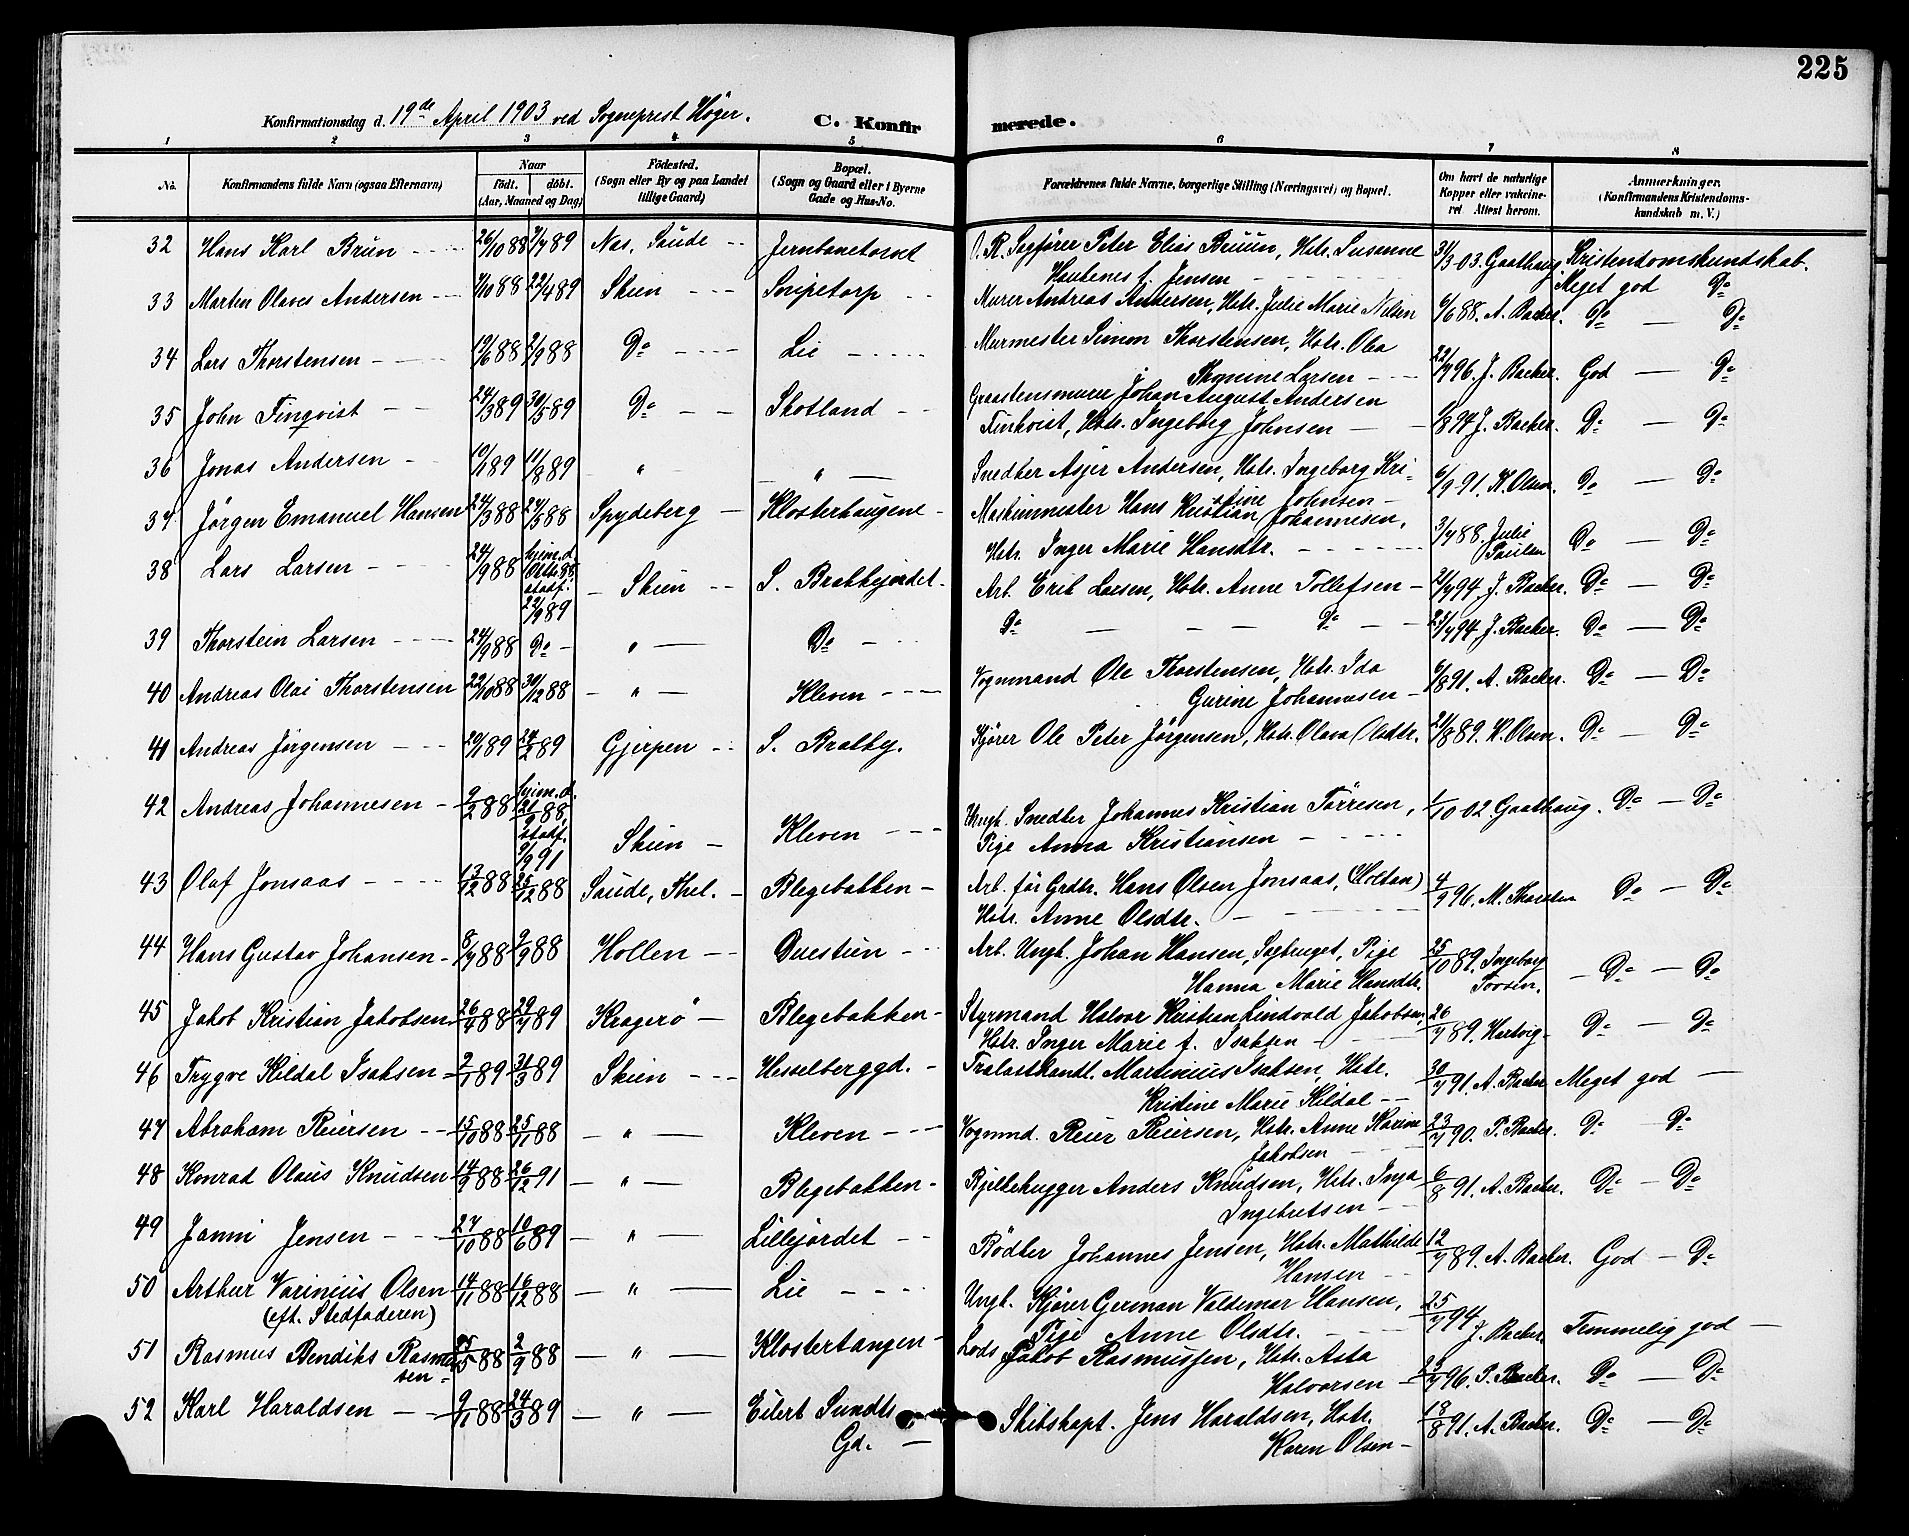 225
Konfirmationsdag d. 19de April 1903 ved Sogneprest Höyer.
C. Konfirmerede.
1 2 3 4 5 6 7 8
No.
Konfirmandens fulde Navn (ogsaa Efternavn)
Naar
födt. döbt.
(Aar, Maaned og Dag)
Födested.
(Sogn eller By og paa Landet
tillige Gaard)
Bopæl.
(Sogn og Gaard eller i Byerne
Gade og Hus-No.
Forældrenes fulde Navne, borgerlige Stilling (Næringsvei) og Bopæl.
Om havt de naturlige
Kopper eller vakcine-
ret Attest herom.
Anmærkninger.
(Konfirmandens Kristendoms-
kundskab m. V.)
32 Hans Karl Brun 26/10 88 7/7 89 Nas, Saude Jernbanetorvet O. R. Sagfører Peter Elias Bruun, Hstr. Susanne
Haubenes f. Jensen 31/3 03. Gaathaug Kristendomskundskab.
Meget god Do
33 Marten Olaves Andersen 7/10 88 22/4 89 Skien Snipetorp Murer Andreas Andersen, Hstr. Julie Marie Nilsen 6/6 88. A. Backer. Do — Do
34 Lars Thorstensen 19/6 88 2/9 88 Do Lie Murmester Simon Thorstensen, Hstr. Olea
Thonine Larsen 22/7 96. J. Backer. God — Do
35 John Finqvist 24/3 89 30/5 89 Do Skotland Graastensmurer Johan August Andersen
Finkvist, Hstr. Ingeborg Johnsen 8 94 J. Backer. Do — Do
36 Jonas Andersen 19/1 89 11/8 89 " " Snedker Asjer Andersen, Hstr. Ingeborg Kri-
stine Johnsen 6/9 91. K. Olsen. Do — Do
37 Jørgen Emanuel Hansen 24/3 88 27/5 88 Spydeberg Klosterhaugene Maskinmester Hans Kristian Johannesen,
Hstr. Inger Marie Hansdtr. 3/7 88. Julie
Paulsen Do — Do
38 Lars Larsen 24/9 88 hjem. d.
Oktr. 88
stadf.
22/9 89 Skien S. Brekkejordet Arb. Erik Larsen, Hstr. Anne Tollefsen 2/7 94. J. Backer. Do — Do
39 Thorstein Larsen 24/9 88 Do " Do Do — — — Do — 21/7 94 J. Backer. Do — Do
40 Andreas Olai Thorstensen 22/10 88 30/12 88 " Kleven Vognmand Ole Thorstensen, Hstr. Ida
Gurine Johannesen 6/8 91. A. Backer. Do — Do
41 Andreas Jørgensen 20/1 89 24/2 89 Gjerpen S. Brekky. Kjører Ole Peter Jørgensen, Hstr. Olava Olsdtr. 21/8 89. K. Olsen. Do — Do
42 Andreas Johannesen 9/2 88 hjem. d.
21/9 88,
stadf.
9/9 91 Skien Kleven Ungk. Snedker Johannes Kristian Tørresen,
Pige Anna Kristiansen 1/10 02 Gaathaug. Do — Do
43 Olaf Jonsaas 13/12 88 25/12 88 Saude, Thel. Blegebakken Arb. før Grdbr. Hans Olsen Jonsaas, (Holtan)
Hstr. Anne Olsdtr. 4/9 96. M. Thorsten Do — Do
44 Hans Gustav Johansen 8/7 88 9/9 88 Hollen Duestien Arb. Ungk. Johan Hansen, Sagbruget, Pige
Hanna Marie Hansdtr. 25/10 89. Ingeborg
Tovsen. Do — Do
45 Jakob Kristian Jakobsen 26/4 88 29/7 89 Kragerö Blegebakken Styrmand Halvor Kristian Lindvold Jakobsen,
Hstr. Inger Marie f. Isaksen 26/7 89. Hertvig Do — Do
46 Trygve Kildal Isaksen 2/1 89 31/3 89 Skien Hesselberggd. Trælasthandl. Martinius Isaksen, Hstr.
Kristine Marie Kildal 30/7 91. A. Backer Meget god —
47 Abraham Reiersen 15/10 88 25/11 88 " Kleven Vognmd. Reier Reiersen, Hstr. Anne Karine
Jakobsen 23/7 90. P. Backer. Do Do
48 Konrad Olaus Knudsen 14/9 88 26/12 91 " Blegebakken Bjelkehugger Anders Knudsen, Hstr. Inga
Ingebretsen 6/8 91. A. Backer. Do — Do
49 Janni Jensen 27/10 88 10/6 89 " Lillejordet Bødker Johannes Jensen, Hstr. Mathilde
Hansen 12/7 89. A. Backer. God — Do
50 Arthur Varinius Olsen
(eft. Stedfaderen) 14/11 88 16/12 88 " Lie Ungk. Kjører German Valdemar Hansen,
Pige Anne Olsdtr. 25/7 94
J. Backer Temmelig god —
51 Rasmus Bendiks Rasmus-
sen 25/5 88 2/9 88 " Klostertangen Lods Jakob Rasmussen, Hstr. Asta
Halvorsen 23/7 96. P. Backer. Do — Do
52 Karl Haraldsen 9/11 88 24/3 89 " Eilert Sundts
Gd. Skibskapt. Jens Haraldsen, Hstr.
Karen Olsen 18/8 91. A. Backer. Do — Do